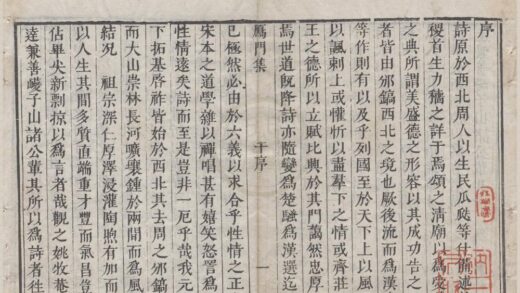 序
詩原於西北周人以生民瓜瓞等什
稷首生力穡之詳于焉頌之清廟以為
之典所謂美盛德之形容以其成功告之
者皆由邠鎬西北之境也厥後流而為漢
等作則有以及乎列國至於天下上以風
以諷刺上或懽忻以盡羣下之情或齊莊
王之德所以立賦比興於其門藹然忠厚
焉世道旣降詩亦隨變為楚騷為漢選迄
鴈門集 干序 一
已極然必由於六義以求合乎性情之正
宋本之道學雜以禪唱甚有嬉笑怒詈為
性情遠矣詩而至是豈非一厄乎哉我元
下拓基啓祚皆始於西北其去周之邠鎬
而大山崇林長河曠壤鍾於兩間而為風
結況 祖宗深仁厚澤浸灌陶煦有加而
以人生其間多質直端重才豐而氣昌豈
佔畢尖新剽掠以為言者哉觀之姚牧菴
達兼善巙子山諸公輩其所以為詩者往